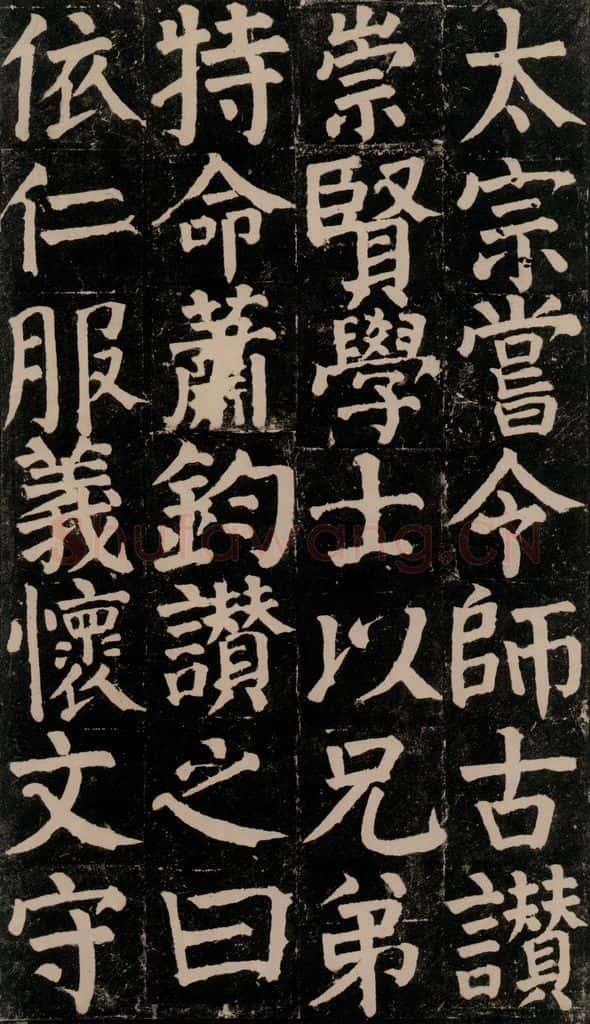 太宗嘗令師古讃
崇賢學士以兄弟
特命蕭鈞讃之曰
依仁服義懷文守
shufawang.CN